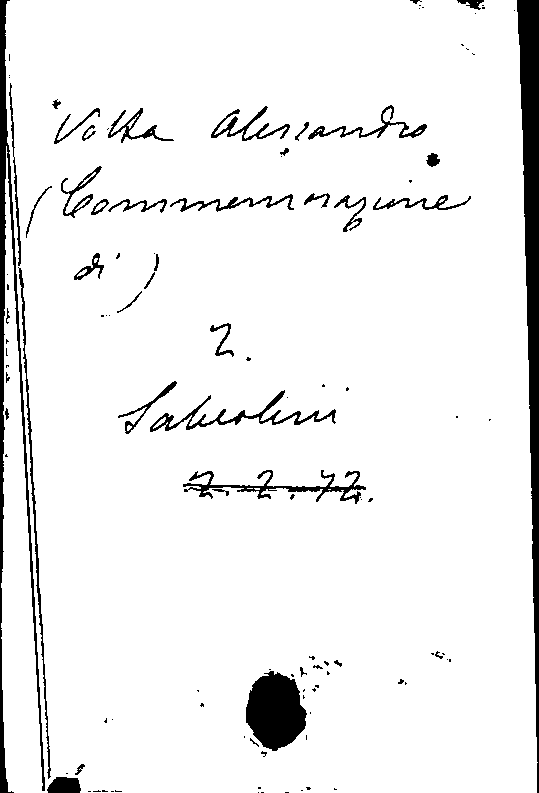 Volta Alessandro
(Commemorazione
di)
2.
Sabeolini
2.2.42.